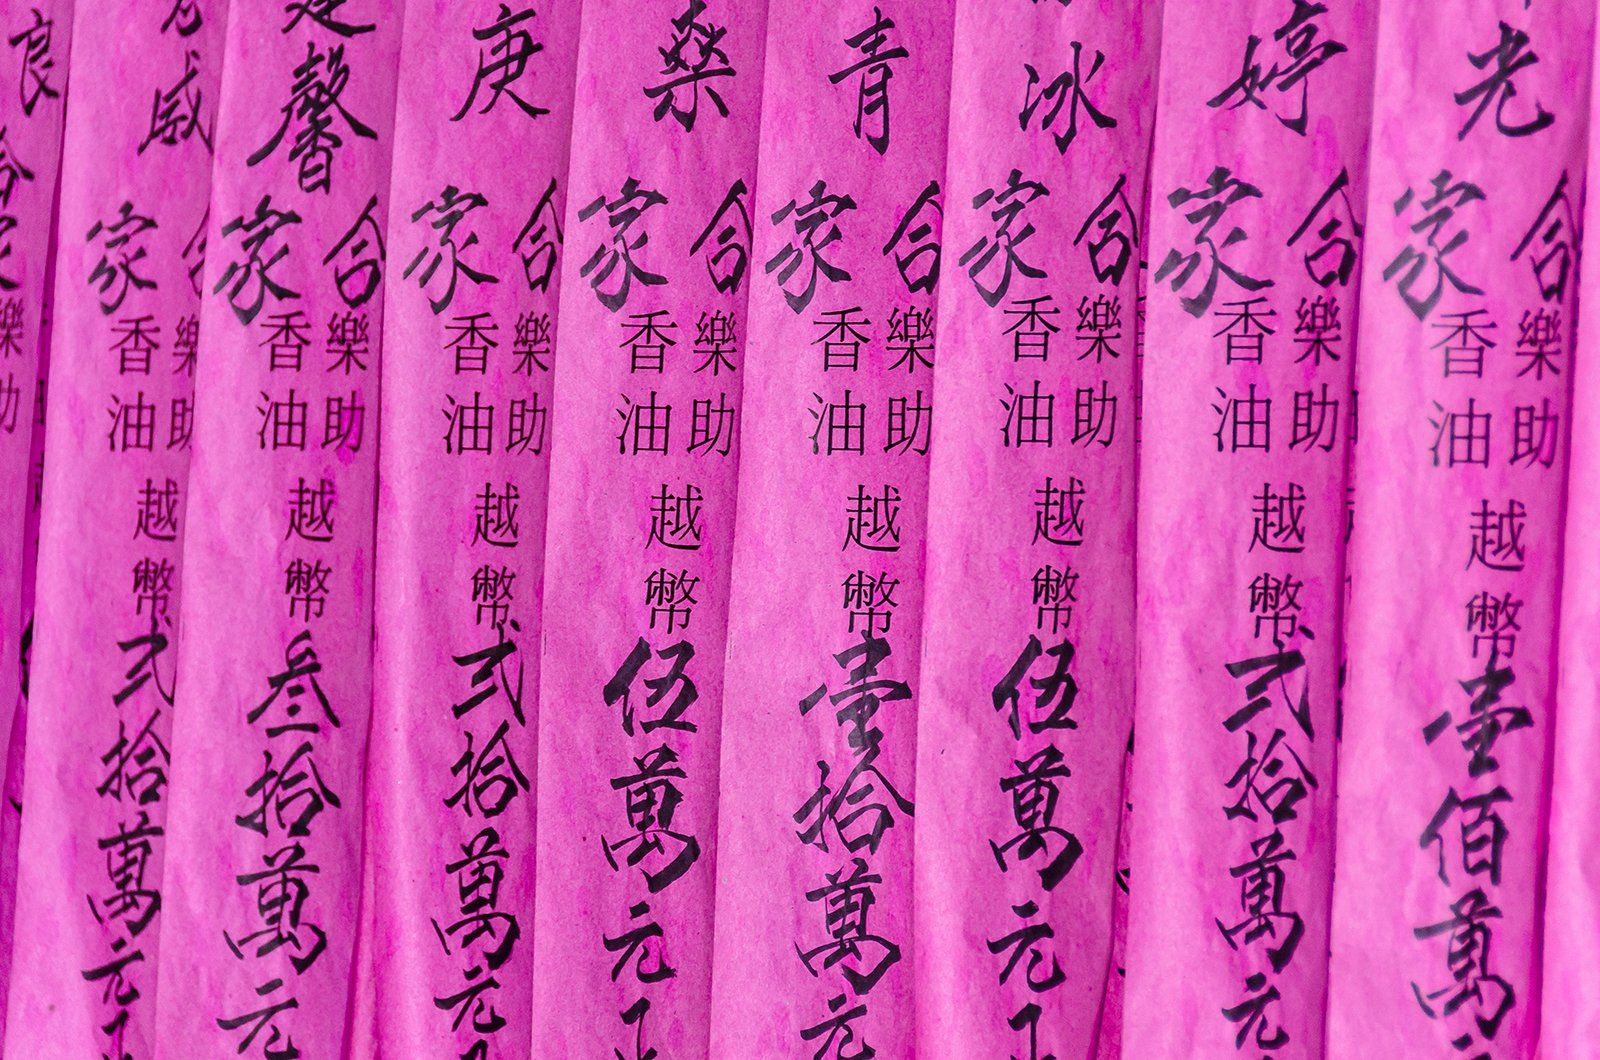 光合家樂助香油越幣壹佰萬
婷合家樂助香油越幣弍拾萬元
冰合家樂助香油越幣伍萬元
青合家樂助香油越幣壹拾萬元
燊合家樂助香油越幣伍萬元
庚合家樂助香油越幣弍拾萬元
馨合家樂助香油越幣叁拾萬元
威合家樂助香油越幣弍拾萬元
良合家樂助